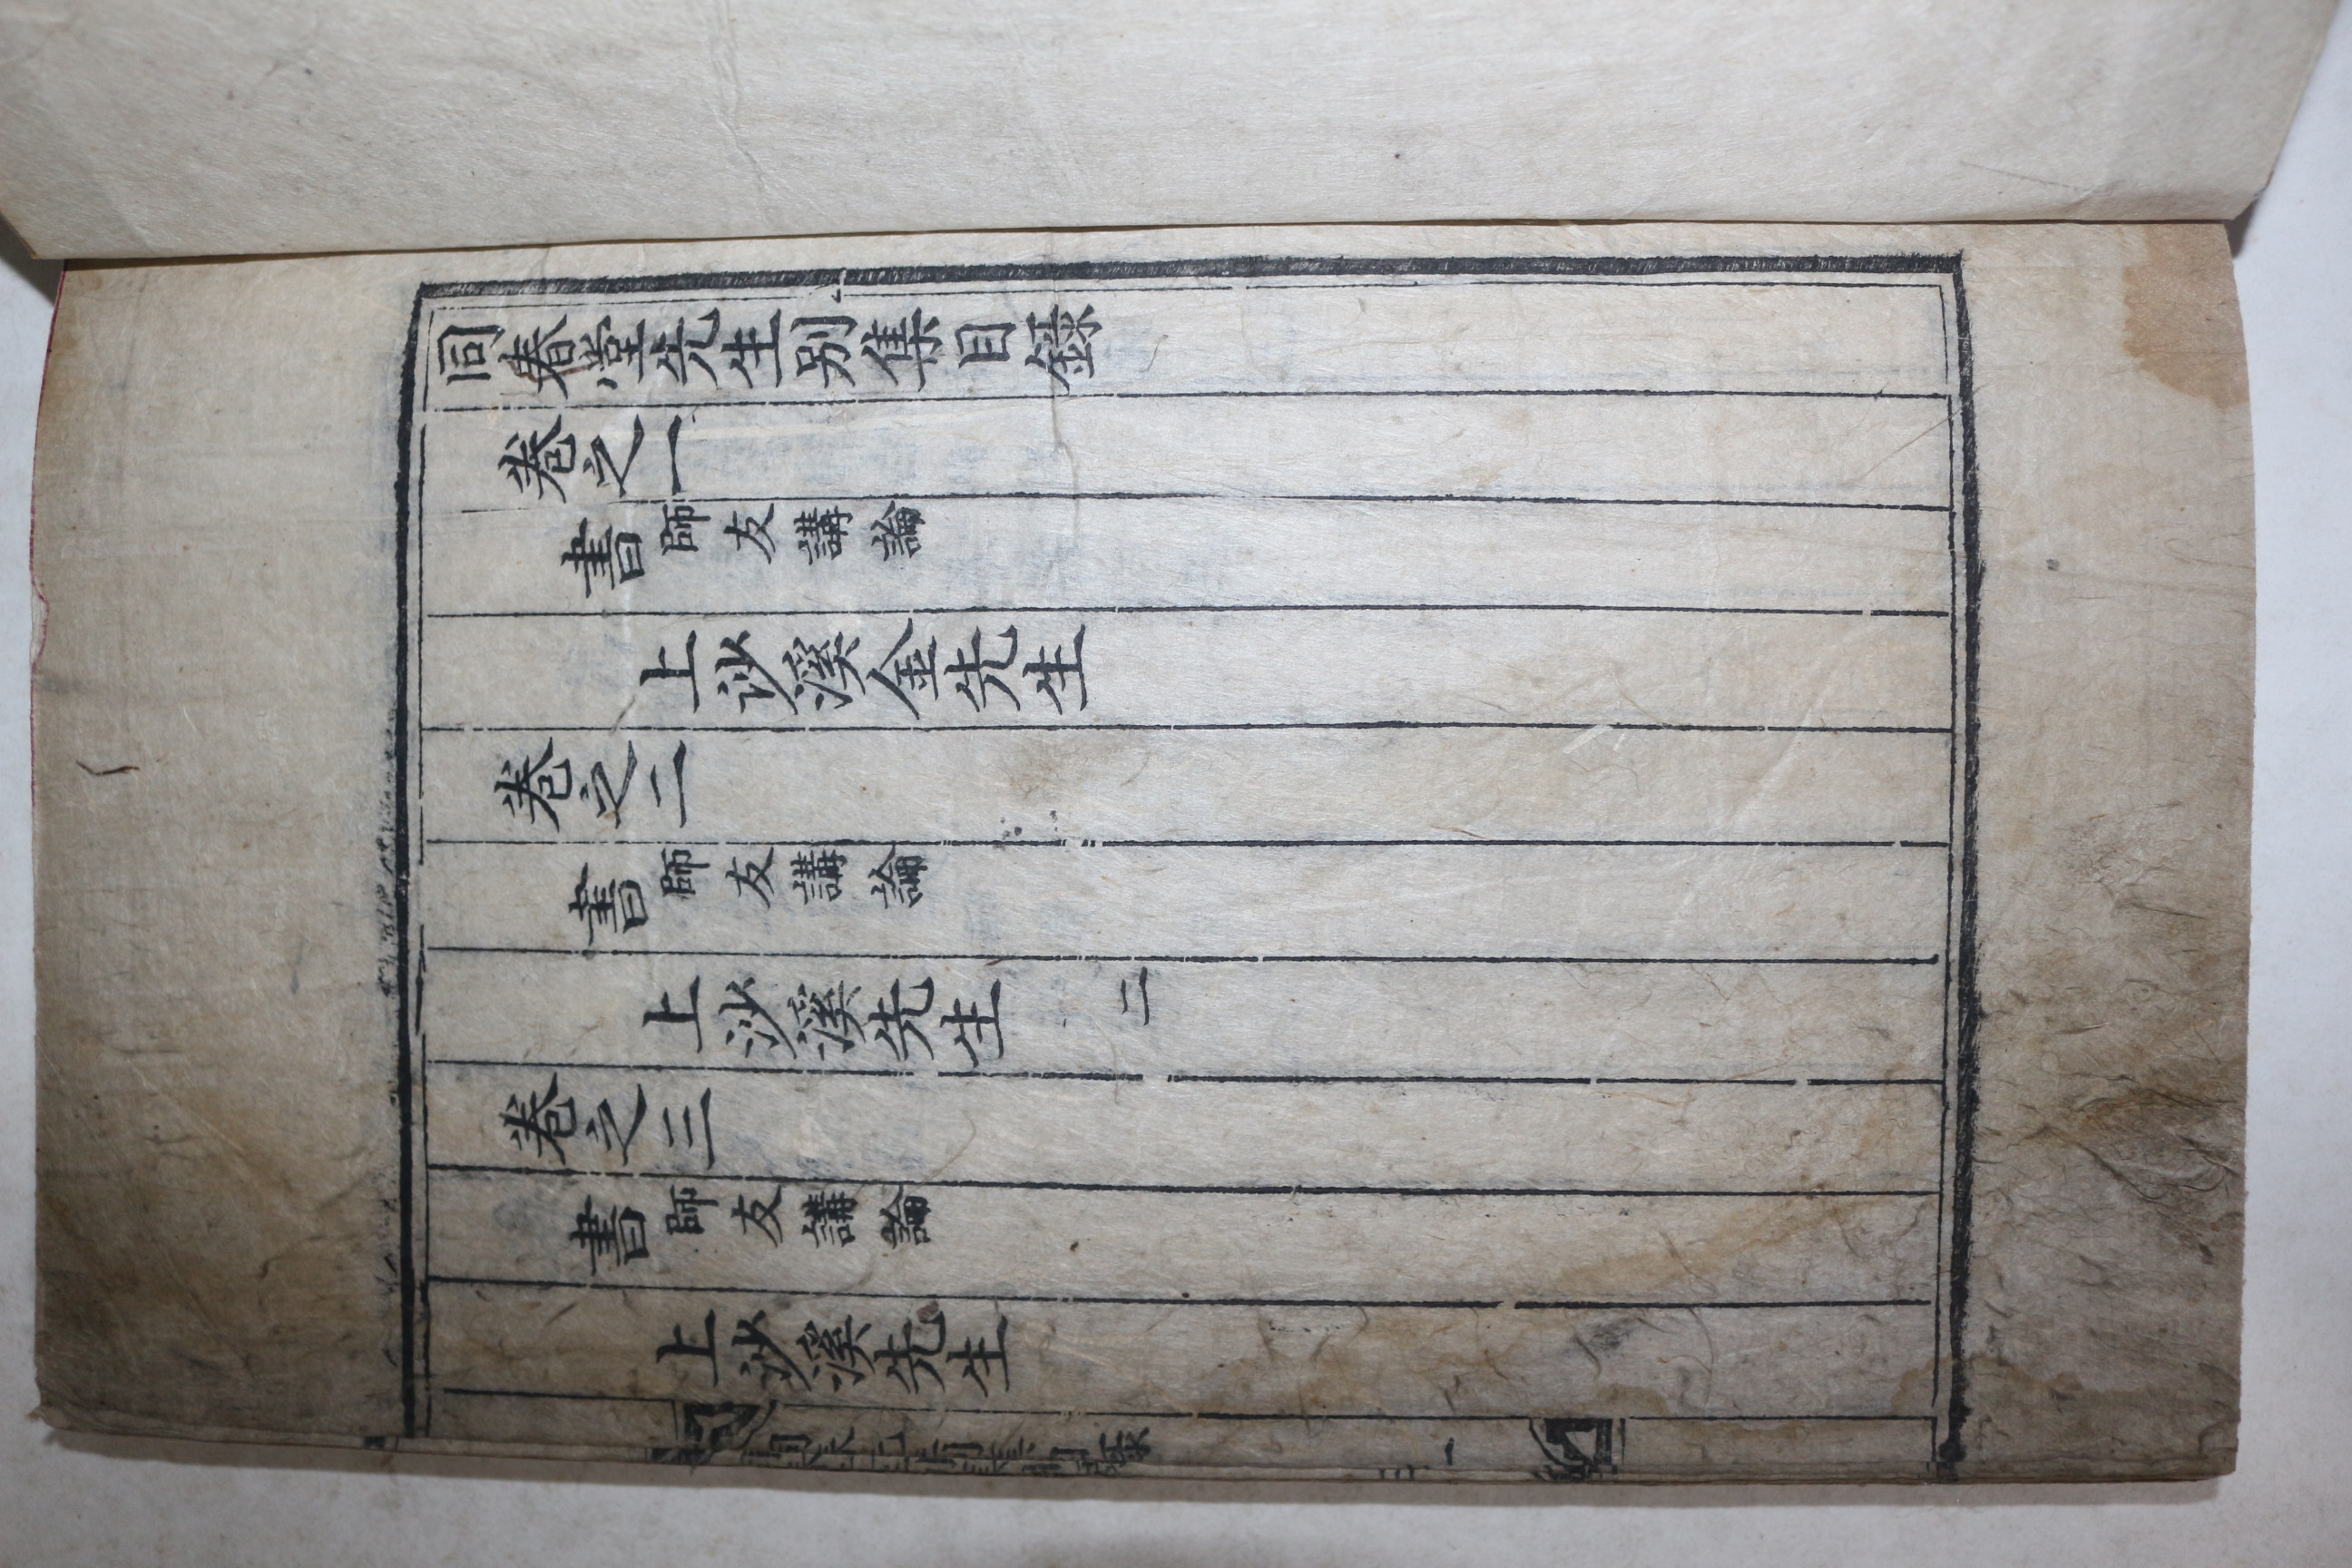 同春堂先生別集目錄
卷之一
書師友講論
上沙溪金先生
卷之二
書師友講論
上沙溪先生 二
卷之三
書師友講論
上沙溪先生